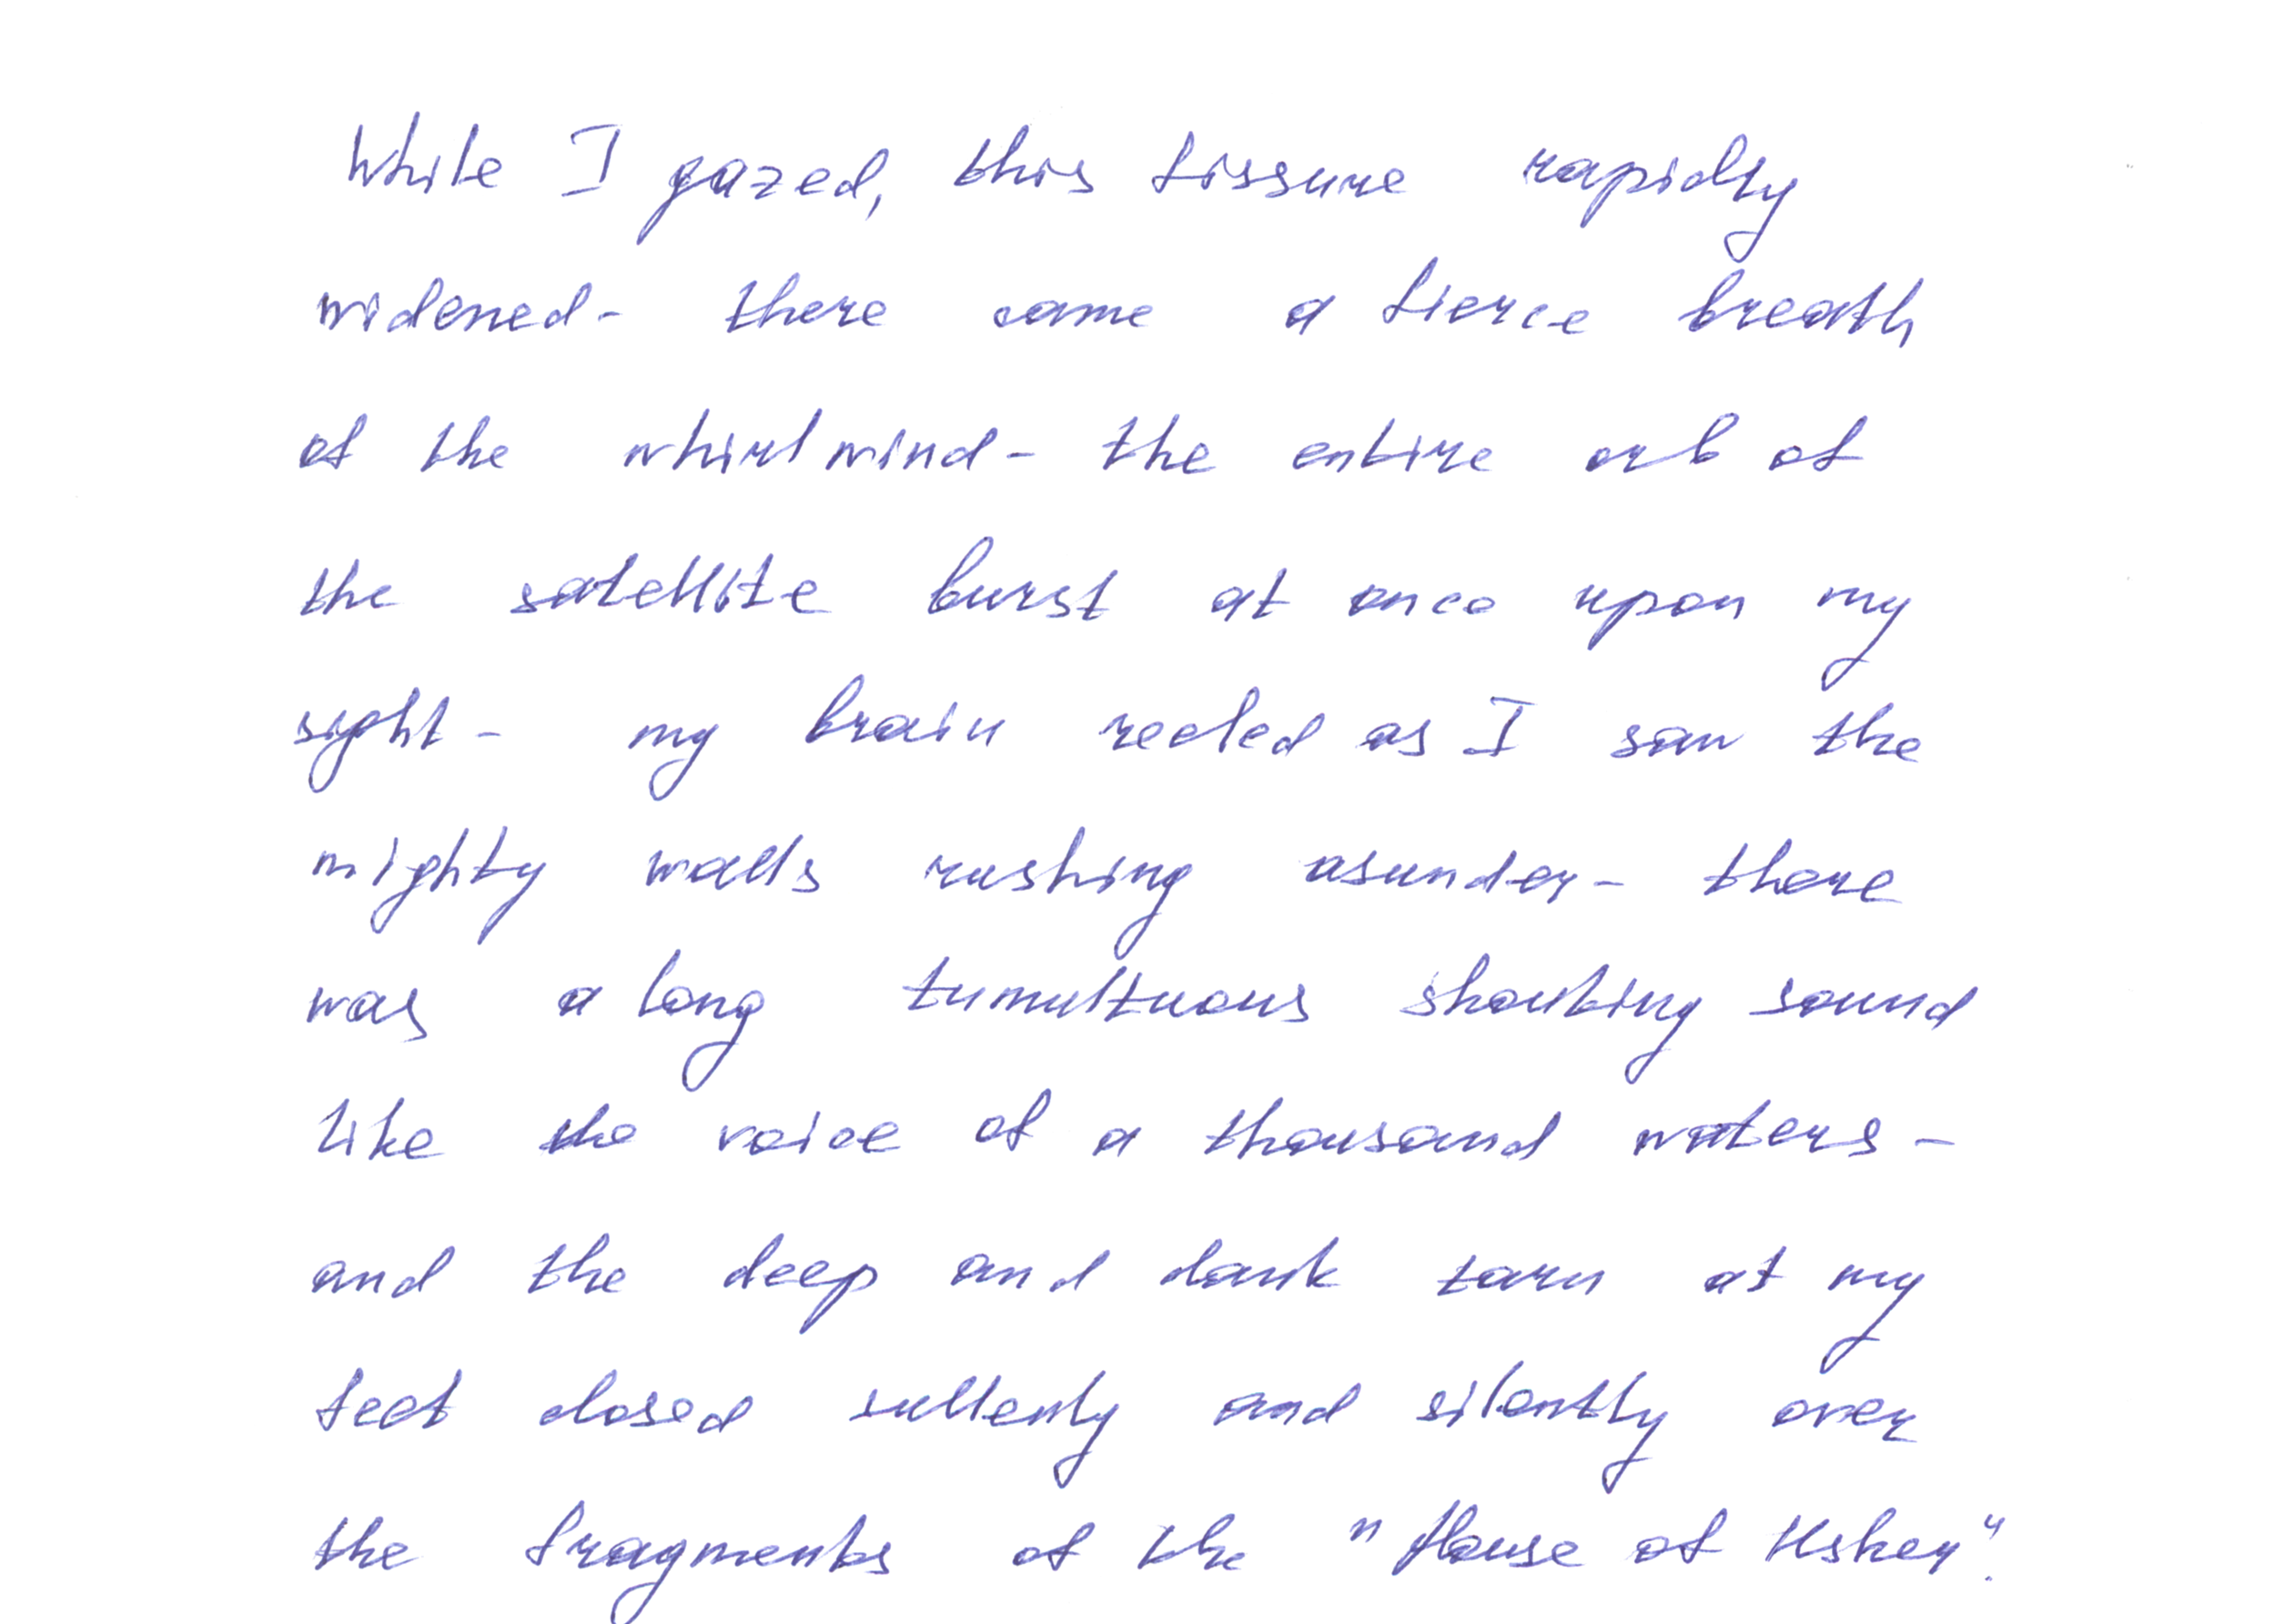 While I gazed, this fissure rapidly
widened- there came a fierce breath
of the whirlwind- the entire orb of
the satellite burst at once upon my
sight- my brain reeled as I saw the
mighty walls rushing asunder- there
was a long tumultuous shouting sound
like the voice of a thousand waters-
and the deep and dank tarn at my
feet closed sullenly and silently over
the fragments of the "House of Usher".